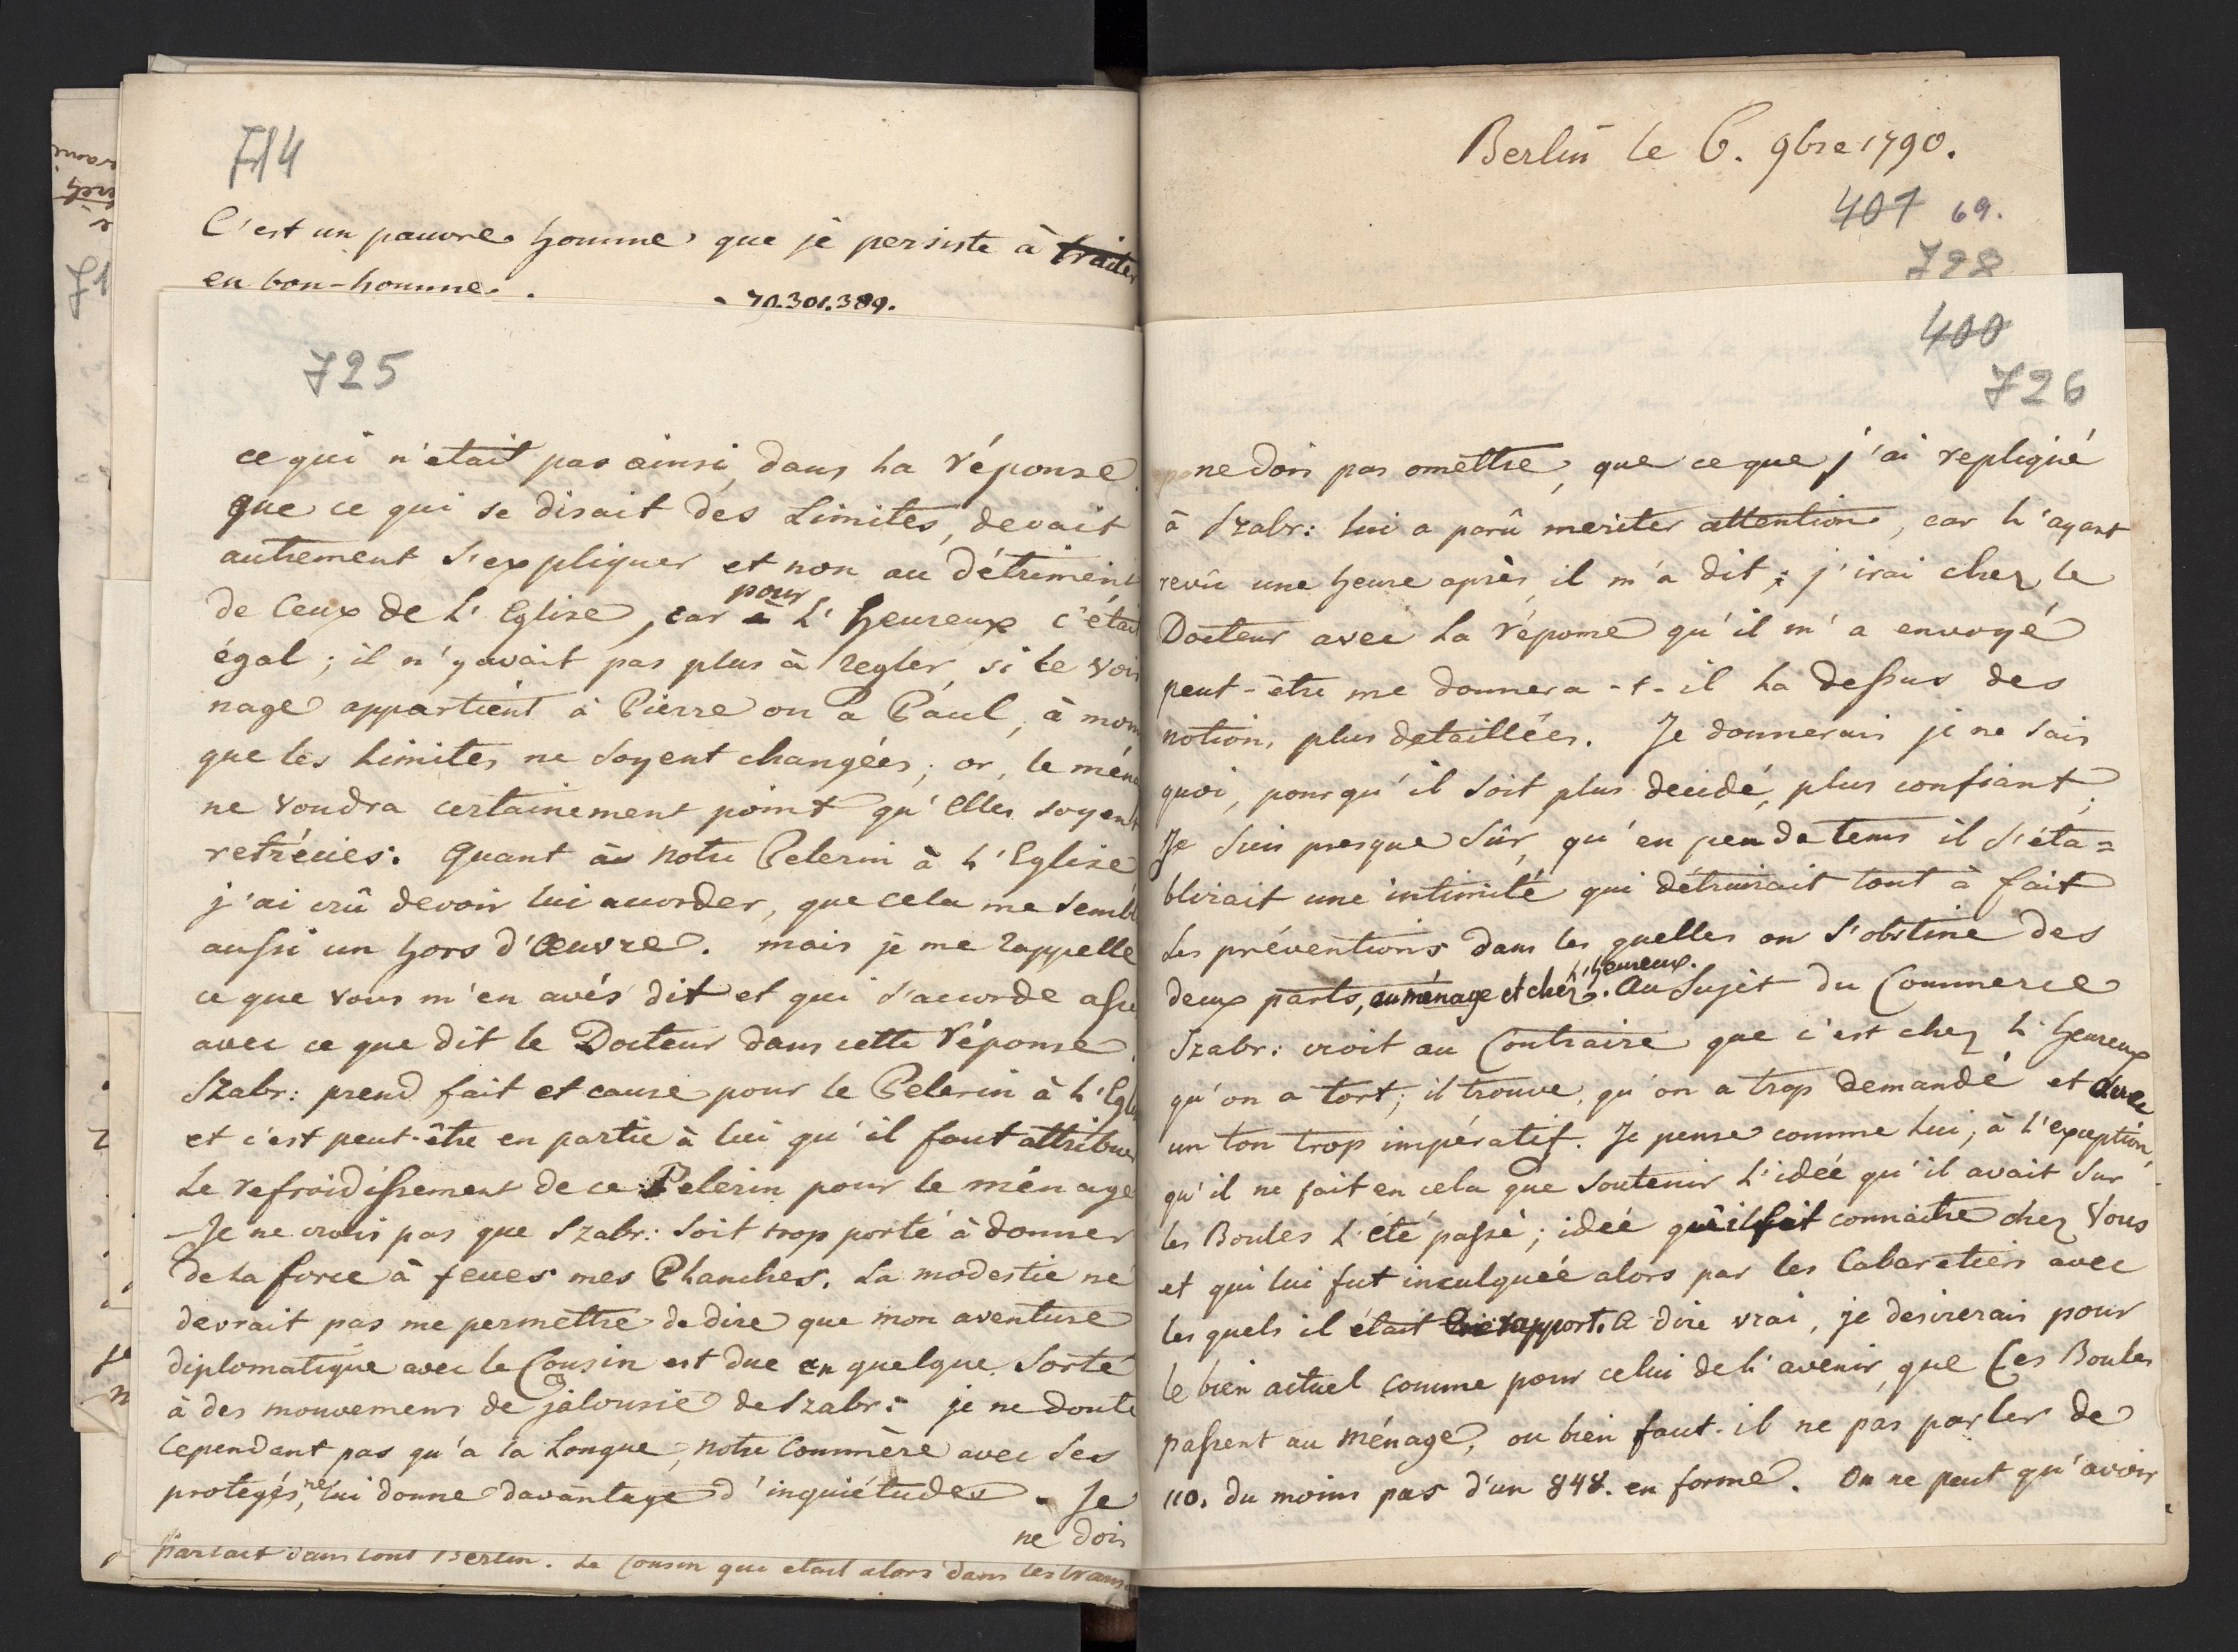 714
C'est un pauvre homme que je persiste à traiter
en bon-homme. 70.301.389.
725
ce qui n'était pas ainsi, dans la réponse.
que ce qui se disait des Limites, devait
autrement s'expliquer et non au détriment
de ceux de l'Eglise, car pour l'heureux c'était
égal; il n'y avait pas plus à regler, si le voisi
nage appartient à Pierre ou à Paul, à moin
que les Limites ne soyent changées; or, le ména
ne voudra certainement point qu'elles soyent
retrécies. Quant à notre Pelerin à l'Eglise
j'ai crû devoir lui accorder, que cela me sembl
aussi un hors d'Œuvre. mais je me rappelle
ce que vous m'en avés dit et qui s'accorde assé
avec ce que dit le Docteur dans cette réponse.
Szabr: prend fait et cause pour le Pelerin à l'Egli
et c'est peut-être en partie à lui qu'il faut attribuer
le refroidissement de ce Pelerin pour le ménage
- Je ne crois pas que Szabr: soit trop porté à donner
de la force à feues mes Planches. La modestie ne
devrait pas me permettre de dire que mon aventure
diplomatique avec le Cousin est due en quelque sorte
à des mouvemens de jalousie de Szabr: je ne doute
cependant pas qu'a la longue, notre Commère avec ses
protegés, ne lui donne davantage d'inquiétudes. Je
ne dois
parlait dans tout Berlin. Le Cousin qui etait alors dans les trans
Berlin le 6. 9bre 1790.
407 69.
728
400
726
ne dois pas omettre, que ce que j'ai repliqué
à Szabr: lui a parû meriter attention, car l'ayant
revû une heure après, il m'a dit; j'irai chez le
Docteur avec la réponse qu'il m'a envoyé
peut-être me donnera-t-il la dessus des
notions plus detaillées. Je donnerais je ne sais
quoi, pourqu'il soit plus decidé, plus confiant,
Je suis presque sûr, qu'en peu de tems il s'éta=
blirait une intimité qui détruirait tout à fait
les préventions dans les quelles on s'obstine des
deux parts, au ménage et chez l'heureux. Au Sujet du Commerce
Szabr: croit au Contraire que c'est chez l'heureux
qu'on a tort; il trouve, qu'on a trop demandé et avec
un ton trop impératif. Je pense comme lui, à l'exception,
qu'il ne fait en cela que soutenir l'idée qu'il avait sur
les Boules l'été passé; idée qu'il fit connaitre chez Vous
et qui lui fut inculquée alors par les Cabaretiers avec
les quels il était en rapport. A dire vrai, je desirerais pour
le bien actuel comme pour celui de l'avenir, que Ces Boules
passent au ménage, ou bien faut-il ne pas parler de
110. du moins pas d'un 848. en forme. On ne peut qu'avoir